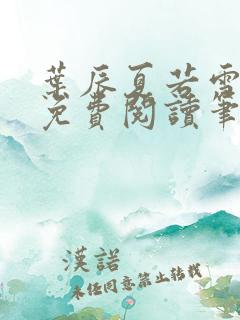 葉辰夏若雪
免費閱讀筆
漢諾
未經同意禁止轉載